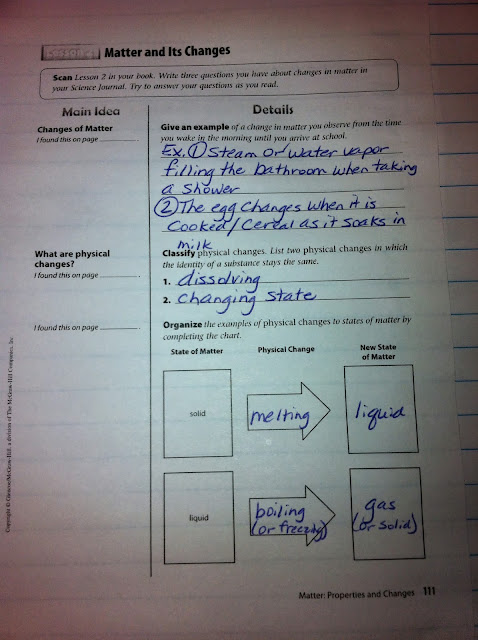 Lesson 2 Matter and Its Changes
Scan Lesson 2 in your book. Write three questions you have about changes in matter in
your Science Journal. Try to answer your questions as you read.
Main Idea
Details
Changes of Matter
I found this on page
Give an example of a change in matter you observe from the time
you wake in the morning until you arrive at school.
Ex. ① Steam or water vapor
filling the bathroom when taking
a shower
② The egg changes when it is
cooked/cereal as it soaks in
milk
What are physical
changes?
I found this on page
Classify physical changes. List two physical changes in which
the identity of a substance stays the same.
1. dissolving
2. changing state
I found this on page
Organize the examples of physical changes to states of matter by
completing the chart.
State of Matter
Physical Change
New State
of Matter
solid
melting
liquid
liquid
boiling
(or freezing)
gas
(or solid)
Copyright © Glencoe/McGraw-Hill, a division of The McGraw-Hill Companies, Inc.
Matter: Properties and Changes 111